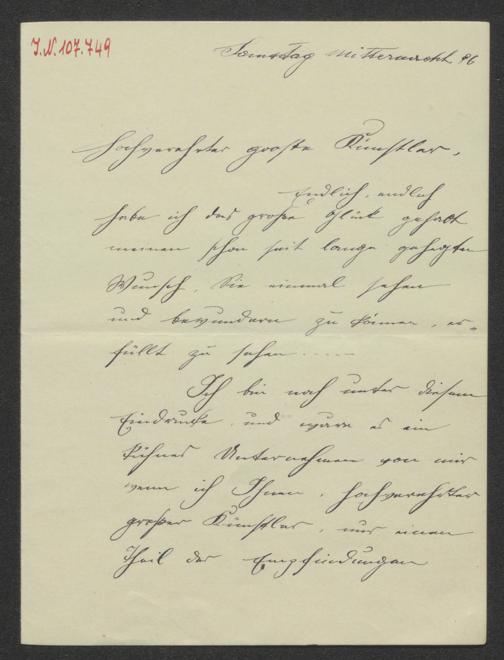 I.N. 107.749
Samstag Mitternacht 96
Hochverehrter großer Künstler,
Endlich, endlich
habe ich das große Glück gehabt
meinen schon seit lange gehegten
Wunsch, Sie einmal sehen
und bewundern zu können, er-
füllt zu sehen ....
Ich bin noch unter diesem
Eindrucke und wäre es ein
kühnes Unternehmen von mir
wenn ich Ihnen, hochverehrter
großer Künstler, nur einen
Theil der Empfindungen